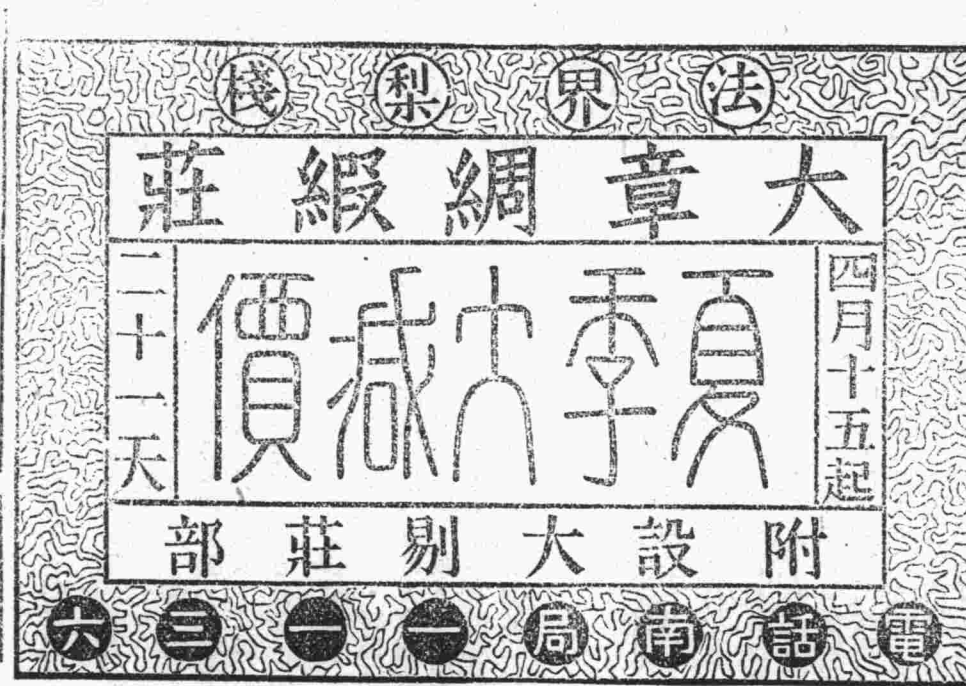 法界梨棧
大章綢緞莊
四月十五起
夏季大減價
二十一天
附設大剔莊部
電話南局一一三六